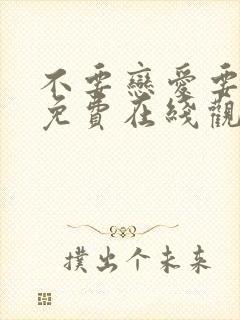 不要戀愛要
免費在綫觀
撲出个未来